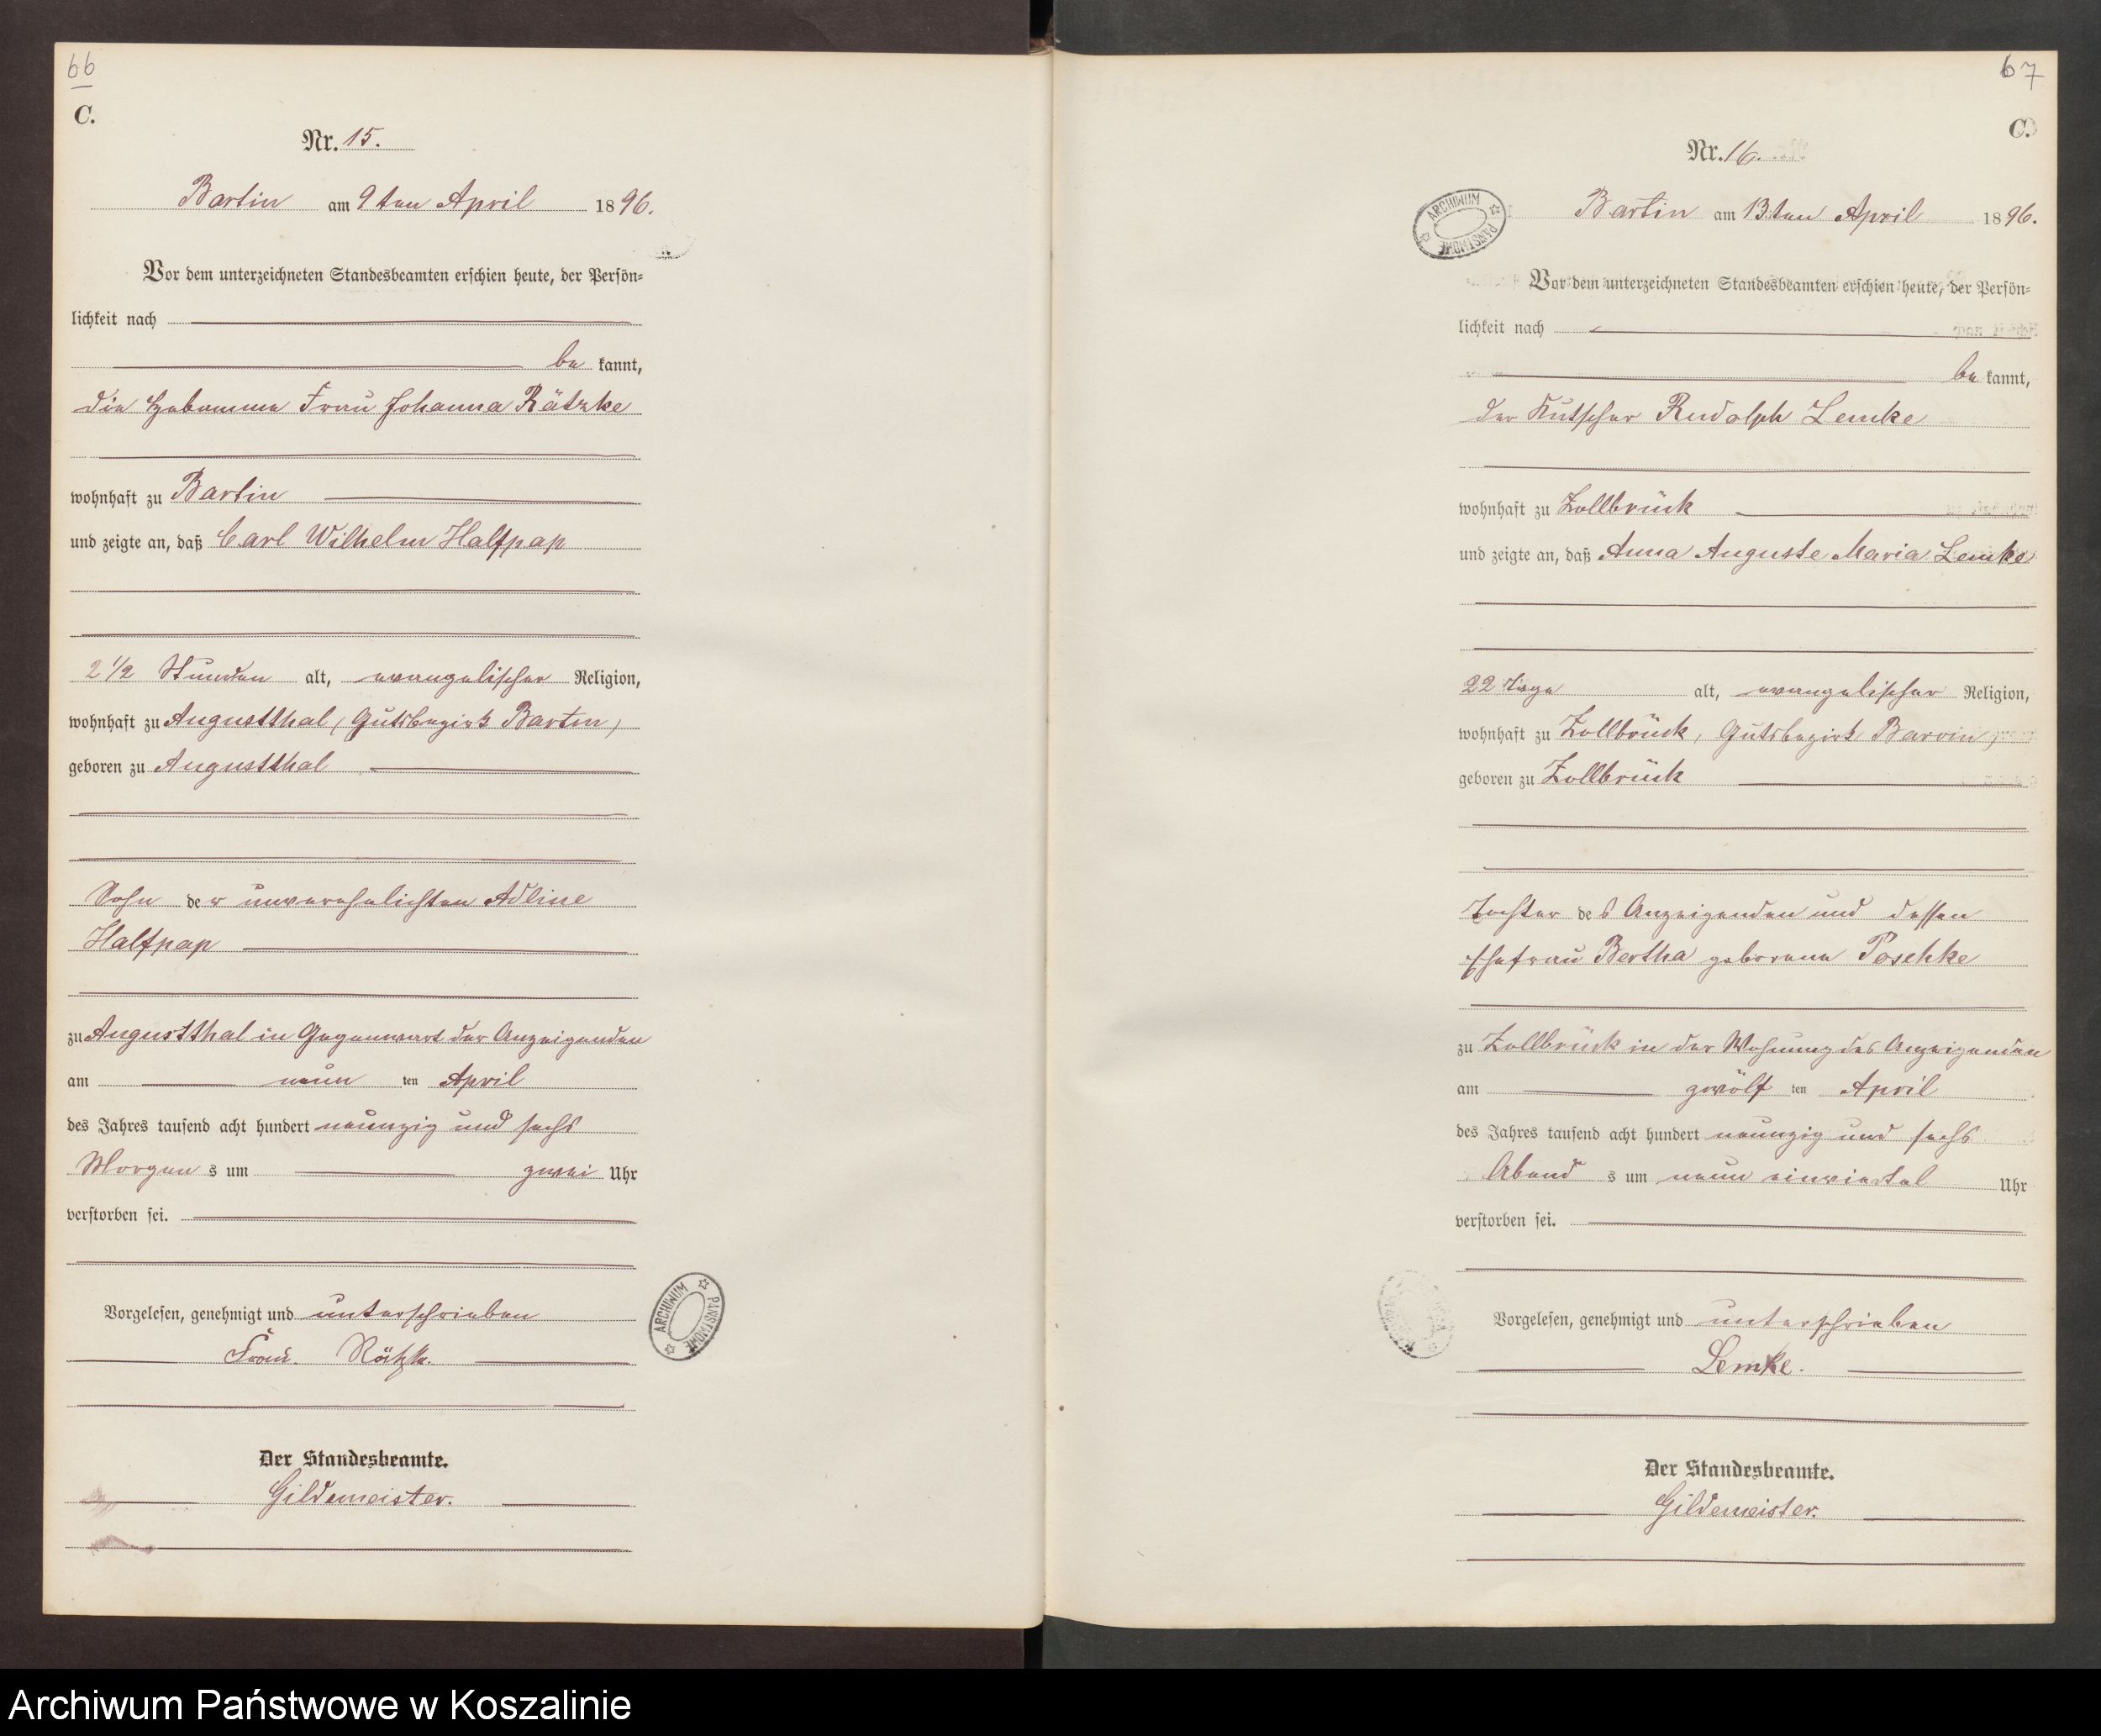 66
C.
Nr. 15.
Bartin am 9ten April 1896.
Vor dem unterzeichneten Standesbeamten erschien heute, der Persön-
lichkeit nach
be kannt,
die Hebamme Frau Johanna Rätzke
wohnhaft zu Bartin
und zeigte an, daß Carl Wilhelm Halfpap
2 1/2 Stunden alt, evangelischer Religion,
wohnhaft zu Augustthal, Gutsbezirk Bartin,
geboren zu Augustthal
Sohn der unverehelichten Adline
Halfpap
zu Augustthal in Gegenwart der Anzeigenden
am neun ten April
des Jahres tausend acht hundert neunzig und sechs
Morgen s um zwei Uhr
verstorben sei.
Vorgelesen, genehmigt und unterschrieben
Frau Rätzke.
Der Standesbeamte.
Gildemeister.
ARCHIWUM PAŃSTWOWE
67
C.
Nr. 16.
ARCHIWUM PAŃSTWOWE
Bartin am 13ten April 1896.
Vor dem unterzeichneten Standesbeamten erschien heute, der Persön-
lichkeit nach
be kannt,
der Kutscher Rudolph Lemke
wohnhaft zu Zollbrück
und zeigte an, daß Anna Auguste Maria Lemke
22 Tage alt, evangelischer Religion,
wohnhaft zu Zollbrück, Gutsbezirk Barvin,
geboren zu Zollbrück
Tochter des Anzeigenden und dessen
Ehefrau Bertha geborene Poschke
zu Zollbrück in der Wohnung des Anzeigenden
am zwölf ten April
des Jahres tausend acht hundert neunzig und sechs
Abend s um neun einviertel Uhr
verstorben sei.
Vorgelesen, genehmigt und unterschrieben
Lemke.
Der Standesbeamte.
Gildemeister.
Archiwum Państwowe w Koszalinie